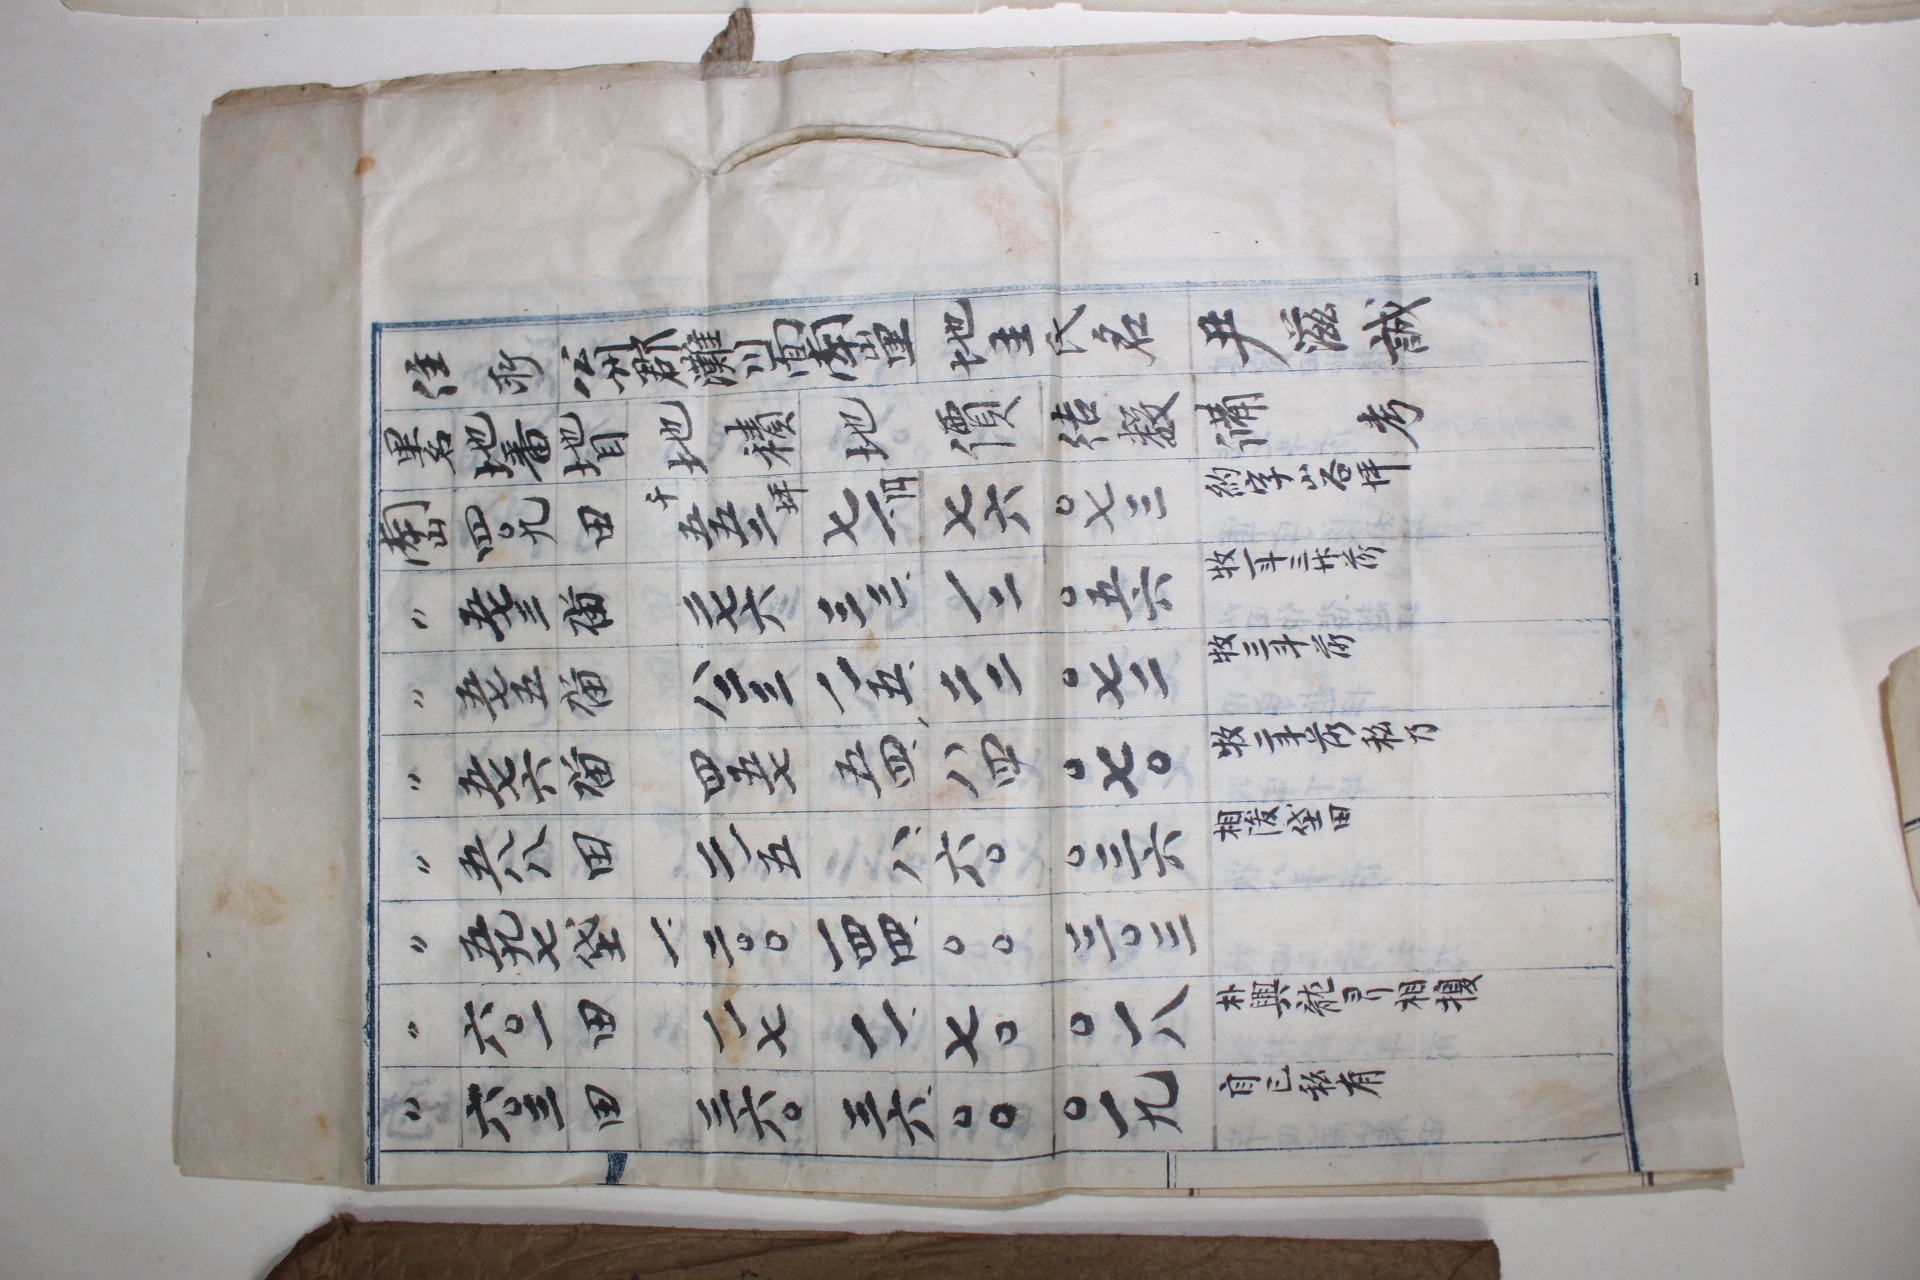 住所 公州郡灘川面南山里 地主氏名 尹滋誠
里名 地番 地目 地積 地價 結數 備考
南山 四〇九 田 千五五二坪 七一円 七六 〇七三 約字山谷坪
〃 五七三 畓 二七六 三三 一二 〇五六 牧一斗三升落
〃 五七五 畓 八二三 一五 二二 〇七二 牧三斗落
〃 五七六 畓 四五七 五四 八四 〇七〇 牧二斗落私乃
〃 五八八 田 二一五 八 六〇 〇三六 相渡垈田
〃 五九七 垈 一二〇〇 一四四 〇〇 三〇三
〃 六〇一 田 一七 一 七〇 〇一八 朴興龍ヨリ相換
〃 六〇三 田 三六〇 三六 〇〇 〇一九 自己私有